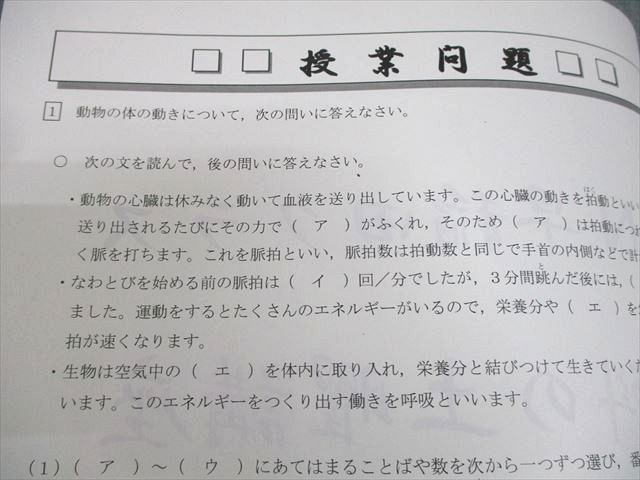 □ □ 授業問題 □ □
1 動物の体の動きについて，次の問いに答えなさい。
○ 次の文を読んで，後の問いに答えなさい。
・動物の心臓は休みなく動いて血液を送り出しています。この心臓の動きを拍動といい
はく
送り出されるたびにその力で（ ア ）がふくれ，そのため（ ア ）は拍動につ
く脈を打ちます。これを脈拍といい，脈拍数は拍動数と同じで手首の内側などで計
・なわとびを始める前の脈拍は（ イ ）回／分でしたが，３分間跳んだ後には，（
と
ました。運動をするとたくさんのエネルギーがいるので，栄養分や（ エ ）を
拍が速くなります。
・生物は空気中の（ エ ）を体内に取り入れ，栄養分と結びつけて生きていく
います。このエネルギーをつくり出す働きを呼吸といいます。
(１)（ ア ）～（ ウ ）にあてはまることばや数を次から一つずつ選び，番